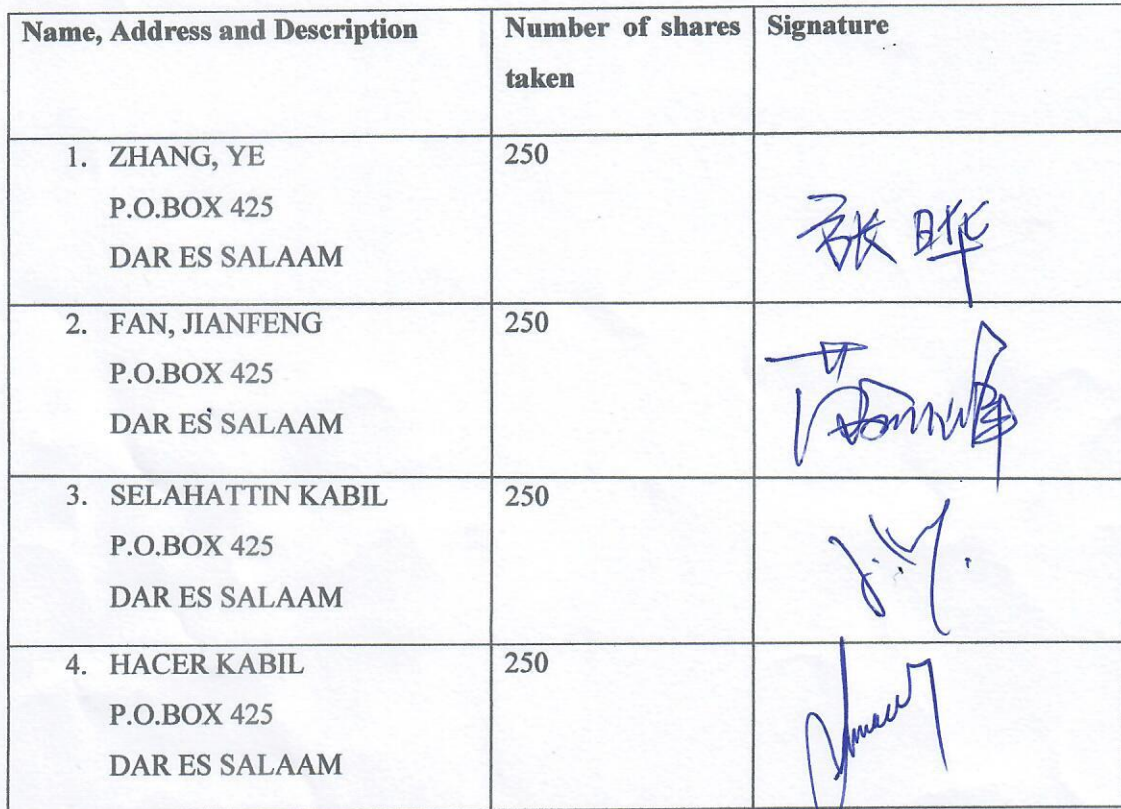 Name, Address and Description
Number of shares taken
Signature
1. ZHANG, YE
P.O.BOX 425
DAR ES SALAAM
250
张晔
2. FAN, JIANFENG
P.O.BOX 425
DAR ES SALAAM
250
3. SELAHATTIN KABIL
P.O.BOX 425
DAR ES SALAAM
250
4. HACER KABIL
P.O.BOX 425
DAR ES SALAAM
250